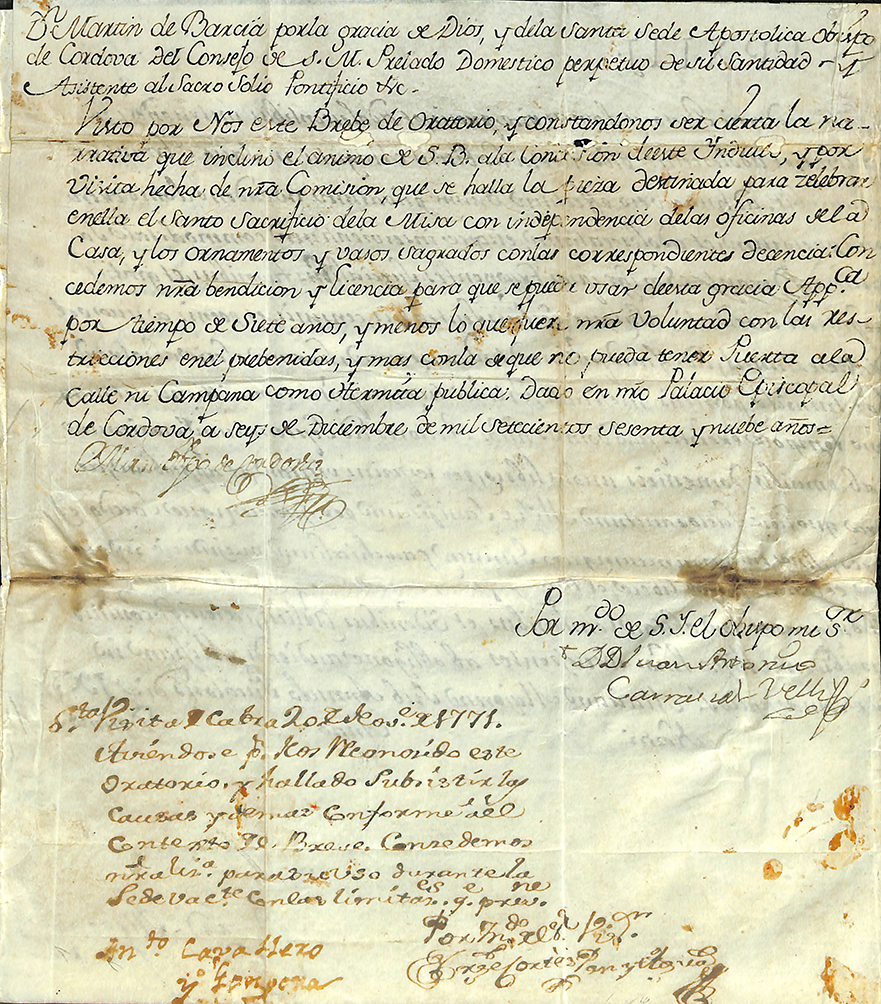 Dn. Martin de Barcia por la gracia de Dios, y dela Santa Sede Apostolica Obispo
de Cordova del Consejo de S. M. Prelado Domestico perpetuo de su Santidad y
Asistente al Sacro Solio Pontificio &c.
Visto por Nos este Brebe de Oratorio, y constandonos ser cierta la na-
rrativa que inclino el animo de S. B. ala Concesion deeste Indulto, y por
Visita hecha de nra Comision, que se halla la pieza destinada para zelebrar
enella el Santo Sacrificio dela Misa con independencia delas oficinas de la
Casa, y los ornamentos y vasos sagrados conlas correspondientes decencia: Con
cedemos nra bendicion y licencia para que se pueda usar deesta gracia Appca
por tiempo de Siete años, y menos lo que fuere nra voluntad con las res-
tricciones enel prebenidas, y mas conla de que no pueda tener Puerta ala
Calle ni Campana como Hermita publica: Dado en nro Palacio Episcopal
de Cordova a seys de Diciembre de mil setecientos sesenta y nuebe años=
Martin Obpo de Cordova
Por mdo de S. I. el obispo mi Sr
D Dn Juan Antonio
Carrascal
Sta Visita Cabra 20 de 1771.
Aviendose pr Nos Reconocido este
Oratorio, y hallado Subsistir las
Causas y demas Conforme a el
Contexto de Breve. Concedemos
nra lisa. para su uso durante la
Sedevacte con las limitaes. q. prev.
Por Mdo del Sr Visr.
Cortes
Anto Cavallero
y Gongora